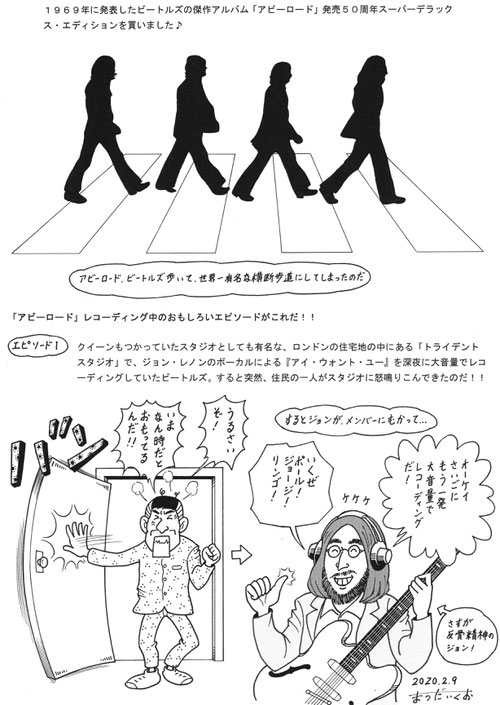 1969年に発表したビートルズの傑作アルバム「アビーロード」発売50周年スーパーデラック
ス・エディションを買いました♪
アビーロード、ビートルズ歩いて、世界一有名な横断歩道にしてしまったのだ
「アビーロード」レコーディング中のおもしろいエピソードがこれだ！！
エピソード1
クイーンもつかっていたスタジオとしても有名な、ロンドンの住宅地の中にある「トライデント
スタジオ」で、ジョン・レノンのボーカルによる『アイ・ウォント・ユー』を深夜に大音量でレコ
ーディングしていたビートルズ。すると突然、住民の一人がスタジオに怒鳴りこんできたのだ！！
バンッ
うるさい
ぞ！
いま
なん時だと
おもってる
んだ!!
するとジョンが、メンバーにむかって…
オーケイ
さいごに
もう一発
大音量で
レコーディング
だ！
いくぜ
ポール！
ジョージ！
リンゴ！
ケケケ
さすが
反骨精神の
ジョン！
2020.2.9
まつだいくお